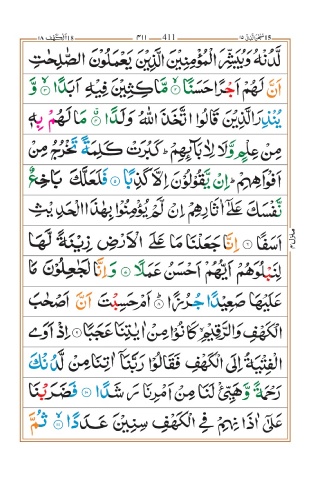 الكهف ١٨ ٣١١ 411 سبحن الذى ١٥
لَّدُنْهُ وَيُبَشِّرَ الْمُؤْمِنِيْنَ الَّذِيْنَ يَعْمَلُوْنَ الصّٰلِحٰتِ
اَنَّ لَهُمْ اَجْرًا حَسَنًا ۙ مَّاكِثِيْنَ فِيْهِ اَبَدًا ۙ وَّ
يُنْذِرَ الَّذِيْنَ قَالُوا اتَّخَذَ اللّٰهُ وَلَدًا ۙ مَا لَهُمْ بِهٖ
مِنْ عِلْمٍ وَّلَا لِاٰبَآئِهِمْ ؕ كَبُرَتْ كَلِمَةً تَخْرُجُ مِنْ
اَفْوَاهِهِمْ ؕ اِنْ يَّقُوْلُوْنَ اِلَّا كَذِبًا ۞ فَلَعَلَّكَ بَاخِعٌ
نَّفْسَكَ عَلٰٓى اٰثَارِهِمْ اِنْ لَّمْ يُؤْمِنُوْا بِهٰذَا الْحَدِيْثِ
اَسَفًا ۞ اِنَّا جَعَلْنَا مَا عَلَى الْاَرْضِ زِيْنَةً لَّهَا
لِنَبْلُوَهُمْ اَيُّهُمْ اَحْسَنُ عَمَلًا ۞ وَاِنَّا لَجٰعِلُوْنَ مَا
عَلَيْهَا صَعِيْدًا جُرُزًا ؕ اَمْ حَسِبْتَ اَنَّ اَصْحٰبَ
الْكَهْفِ وَالرَّقِيْمِ كَانُوْا مِنْ اٰيٰتِنَا عَجَبًا ۞ اِذْ اَوَى
الْفِتْيَةُ اِلَى الْكَهْفِ فَقَالُوْا رَبَّنَآ اٰتِنَا مِنْ لَّدُنْكَ
رَحْمَةً وَّهَيِّئْ لَنَا مِنْ اَمْرِنَا رَشَدًا ۞ فَضَرَبْنَا
عَلٰٓى اٰذَانِهِمْ فِى الْكَهْفِ سِنِيْنَ عَدَدًا ۙ ثُمَّ